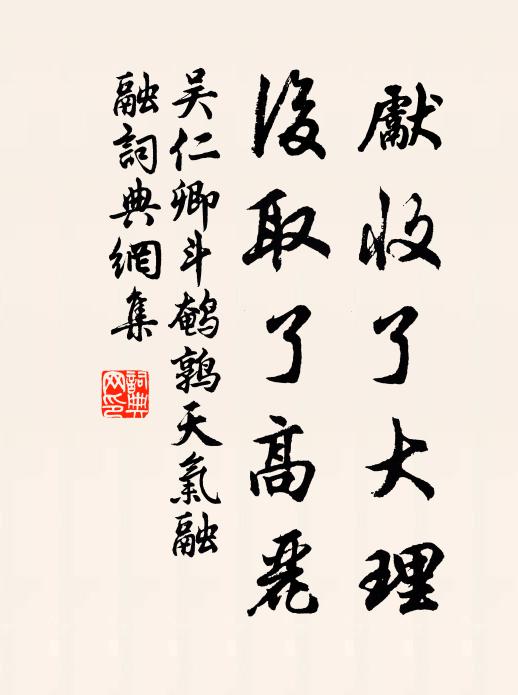 獻收了大理
後取了高麗
吴仁卿斗鵪鶉天氣融
融詞典網集
詞典
网印